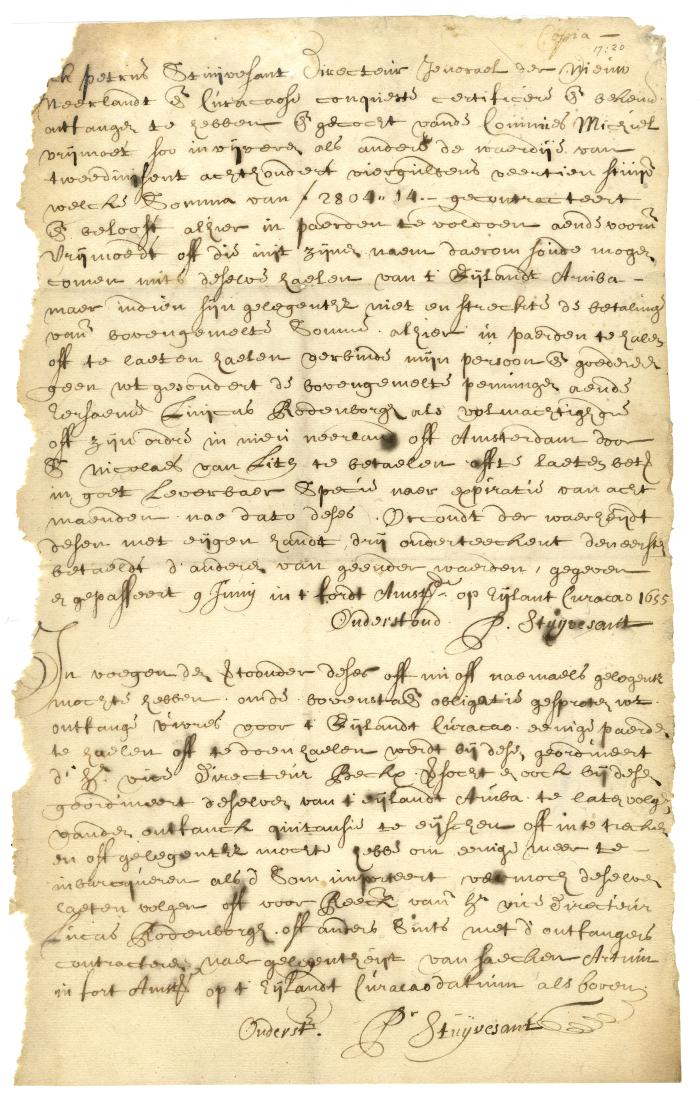 Copia
17:20
Ick petrus Stuijvesant Directeur Generael der Nieuw
Neerlandt & Curacaose conqueste certificere & bekenne
ontfangen te hebben & gecocht vande Commies Michiel
vrijmoet soo in vijveres als anders de waerdije van
tweeduisent achthondert viergulsens veertien stuijvers
welcke Somma van f 2804 " 14 - gecontracteert
& belooft alhier in paerden te voldoen aende voorn
Vrijmoedt off die mit zijnen naem daerom soude mogen
comen mits deselve haelen van t Eijlandt Aruba -
maer indien sijn gelegenth niet en streckte de betaling
vant bovengemelte Somme alhier in paerden te halen
off te laeten haelen verbinde mijn persoon & goederen
geen wt gesondert de bovengemelte penningen aende
Eersaeme Lucas Rodenborgh als volmachtighde
off zijn ordre in nieu neerland off Amsterdam door
Sr Nicolaes van te betaelen offte laeten bet
in goet Leverbaer Specie naer expiratie van acht
maenden nae dato deses. Oircondt der waerheijdt
desen met eijgen handt drij onderteeckent den eersten
betaeldt d'andere van geender waerden, gegeven
en gepasseert 9 Junij in t fordt Amst op Eijlant Curacao 1655
Onderstond P. Stuijvesant
In voegen den thoonder deses off nu off naemaels gelegenth
mochte hebben omde bovenstaende obligatie gesproten wt
ontfange vivres voor t Eijlandt Curacao eenige paerden
te haelen off te doen haelen werdt bij desen geordineert
d' Hr vice Directeur Beckx ock bij desen
geordineert deselve van t eijlandt Aruba te laten volgen
vanden ontfanck quitansie te eijschen off in te trecken
en off gelegenth mochte hebbe om eenige meer te
inbarcqueren als d Som importeert vermoch deselve
laeten volgen off voor Reeck vant Hr vice Directeur
Lucas Rodenborgh off anders Sints met d' ontfangers
contracteren nae gelegentheijt van saecken Actum
in fort Amst op t Eijlandt Curacao datum als boven
Onderst. P. Stuijvesant